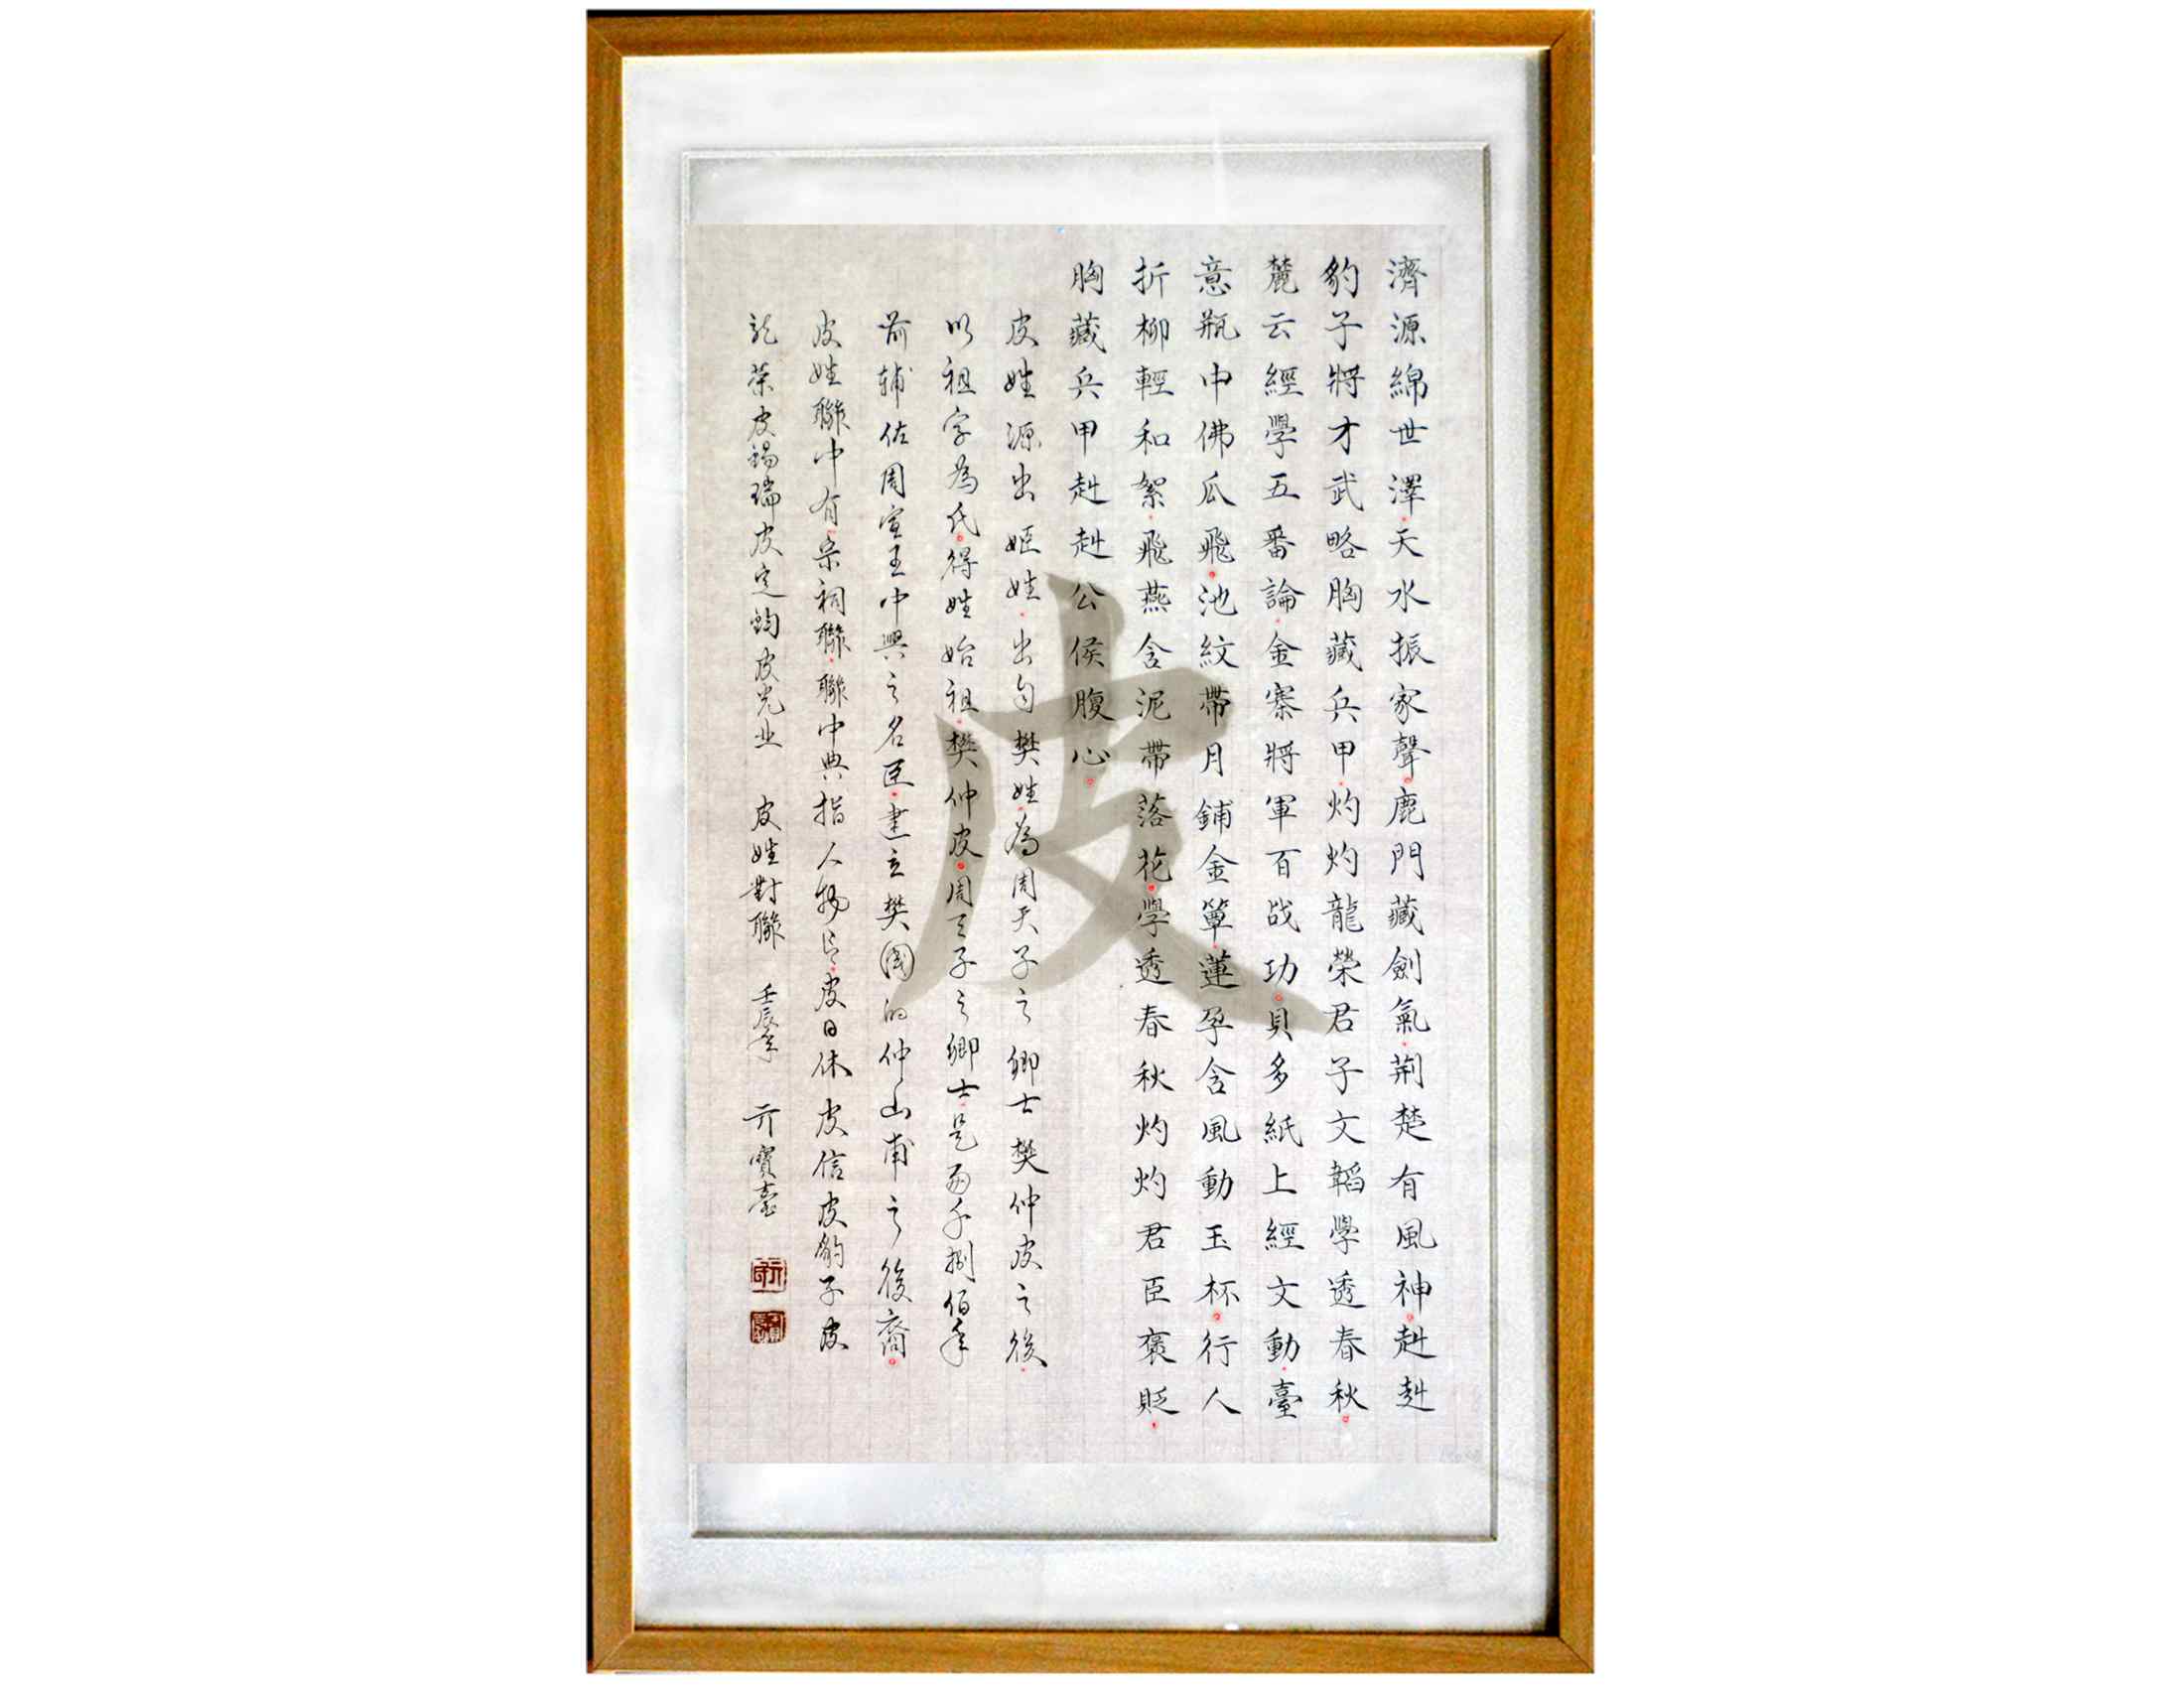 濟源綿世澤天水振家聲鹿門藏劍氣荊楚有風神赳赳
豹子將才武略胸藏兵甲灼灼龍榮君子文韜學透春秋
麓云經學五番論金寨將軍百战功貝多紙上經文動臺
意瓶中佛瓜飛池紋帶月鋪金簟蓮孕含風動玉杯行人
折柳輕和絮飛燕含泥帶落花學透春秋灼灼君臣褒貶
胸藏兵甲赳赳公侯腹心
皮姓源出姬姓出自樊姓為周天子之卿士樊仲皮之後
以祖字為氏得姓始祖樊仲皮周天子之卿士是兩千捌佰年
前辅佐周宣王中興之名臣建立樊國的仲山甫之後裔
皮姓聯中有宗祠聯聯中典指人物皮日休皮信皮豹子皮
龍榮皮錫瑞皮定鈞皮光业 皮姓對聯 壬辰年 亓寶臺
皮